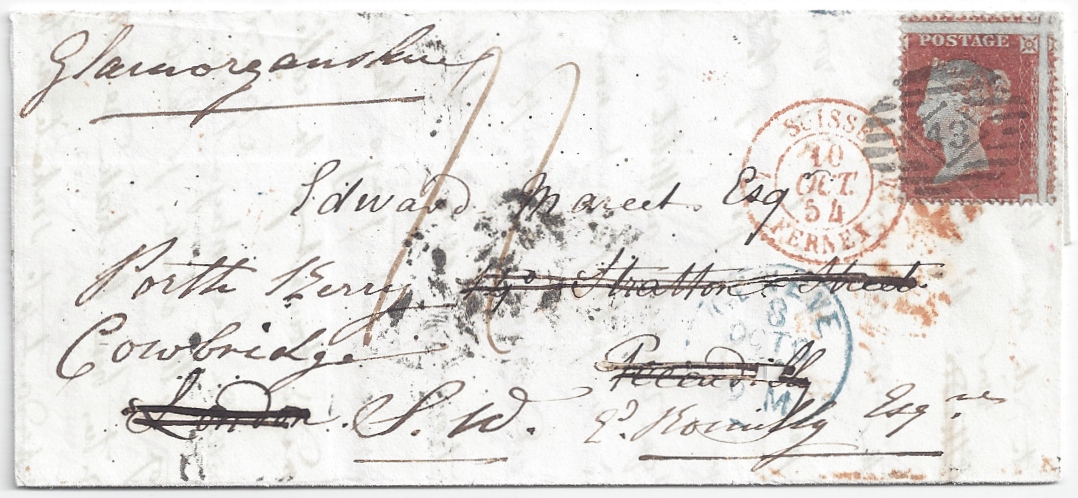 Glamorganshire
POSTAGE
43
SUISSE
10
OCT.
54
FERNEX
Edward Marcet Esqr
Porth Kerry 14 Stratton Street
Cowbridge
Piccadilly
London. S. W. Ed. Romilly Esqre
8
OCT